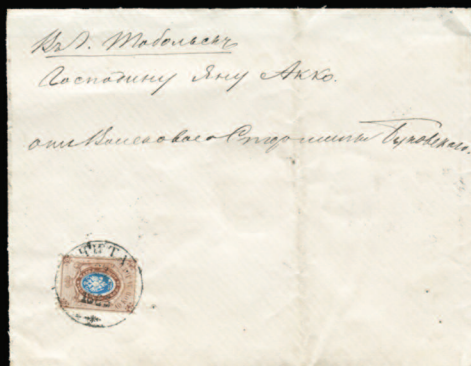 Въ Г. Тобольскъ
Господину Яну Акко.
отъ Войскового Старшины Буковского.
ЧИТА